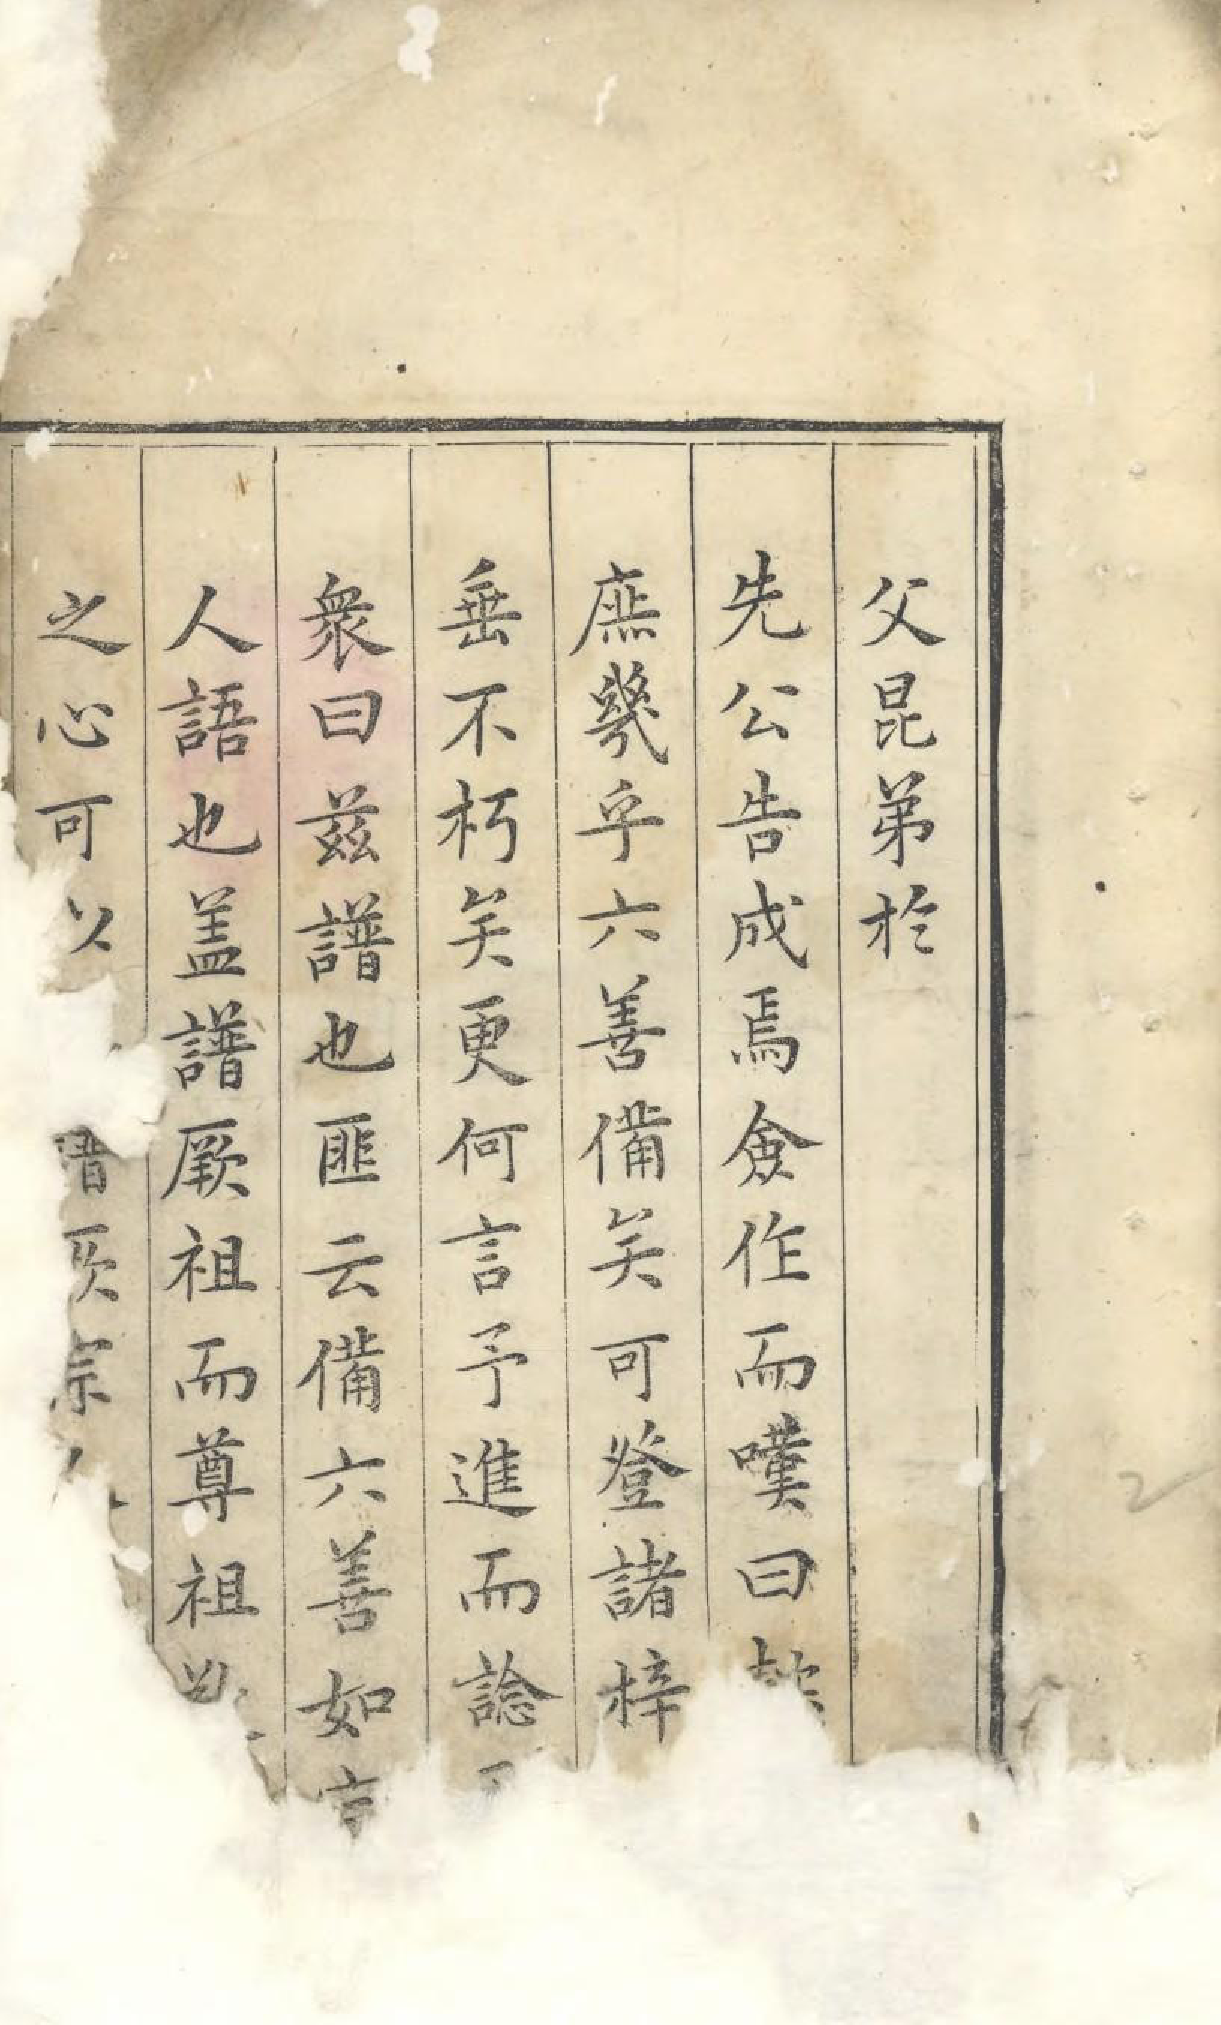 父昆弟於
先公告成焉僉作而嘆曰
庶幾乎六善備矣可登諸梓
垂不朽矣更何言予進而諗
衆曰兹譜也匪云備六善如
人語也盖譜厥祖而尊祖
之心可以譜厥宗